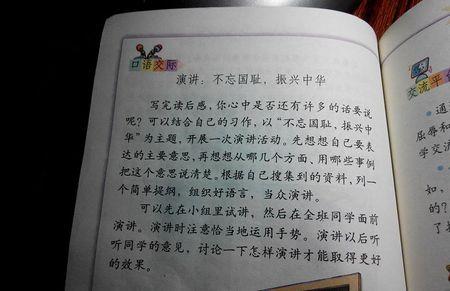 口语交际
演讲：不忘国耻，振兴中华
写完读后感，你心中是否还有许多的话要说
呢？可以结合自己的习作，以“不忘国耻，振兴中
华”为主题，开展一次演讲活动。先想想自己要表
达的主要意思，再想想从哪几个方面、用哪些事例
把这个意思说清楚。根据自己搜集到的资料，列一
个简单提纲，组织好语言，当众演讲。
可以先在小组里试讲，然后在全班同学面前
演讲。演讲时注意恰当地运用手势。演讲以后听
听同学的意见，讨论一下怎样演讲才能取得更好
的效果。
交流平
通
屈辱和
学交流
如，
的？
了